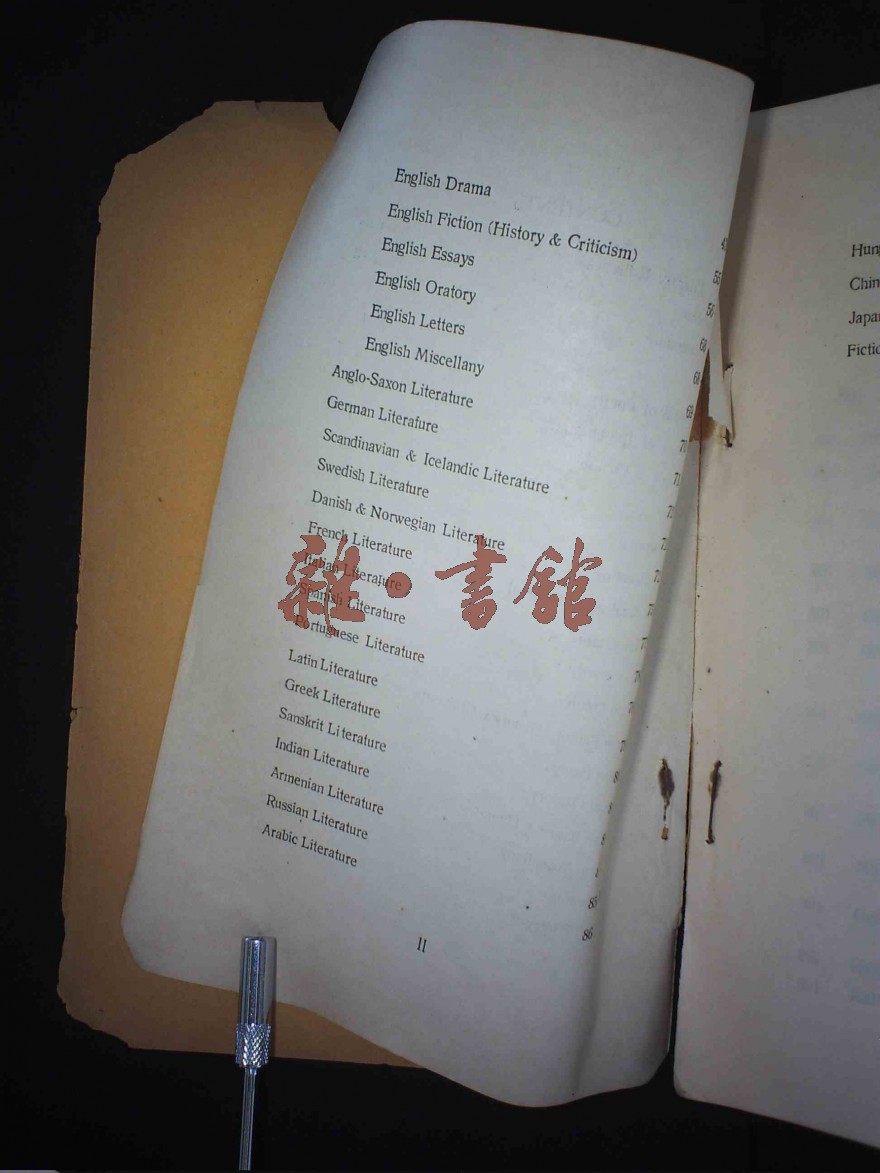 English Drama
English Fiction (History & Criticism)
English Essays
English Oratory
English Letters
English Miscellany
Anglo-Saxon Literature
German Literafure
Scandinavian & Icelandic Literature
Swedish Literature
Danish & Norwegian Literature
French Literature
Italian Literature
Spanish Literature
Portuguese Literature
Latin Literature
Greek Literature
Sanskrit Literature
Indian Literature
Armenian Literature
Russian Literature
Arabic Literature
85
86
II
雜·書館